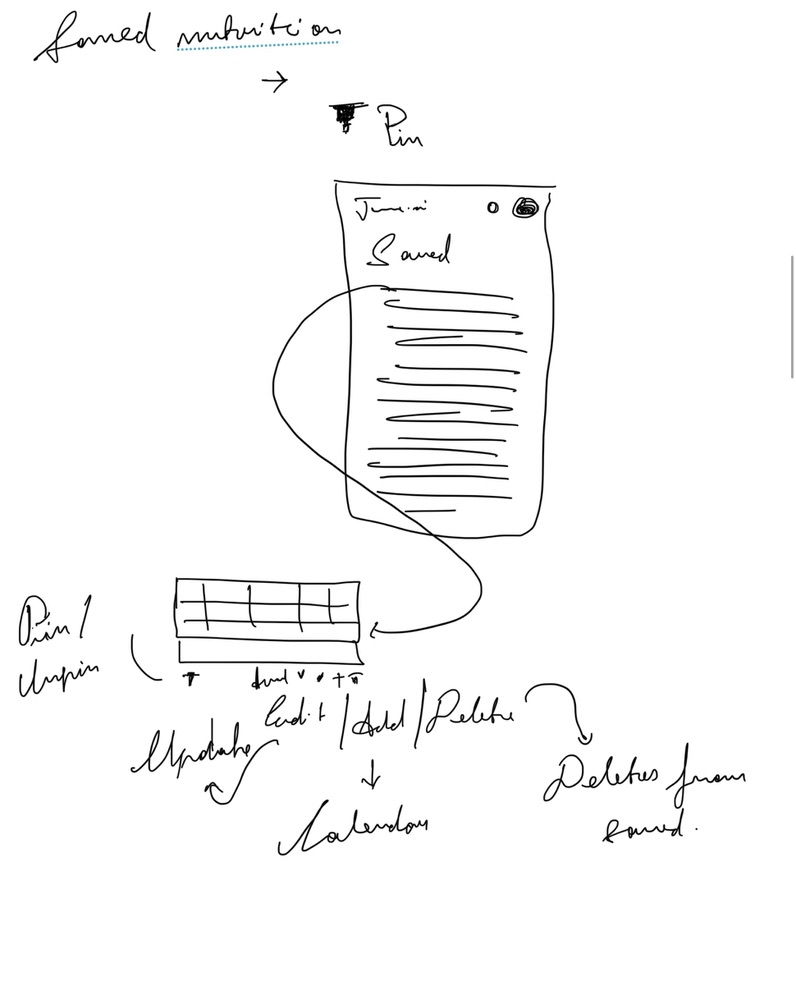 Saved nutrition
→
Pin
Saved
Pin /
Unpin
Edit / Add / Delete
Update
Calendar
Deletes from
saved.